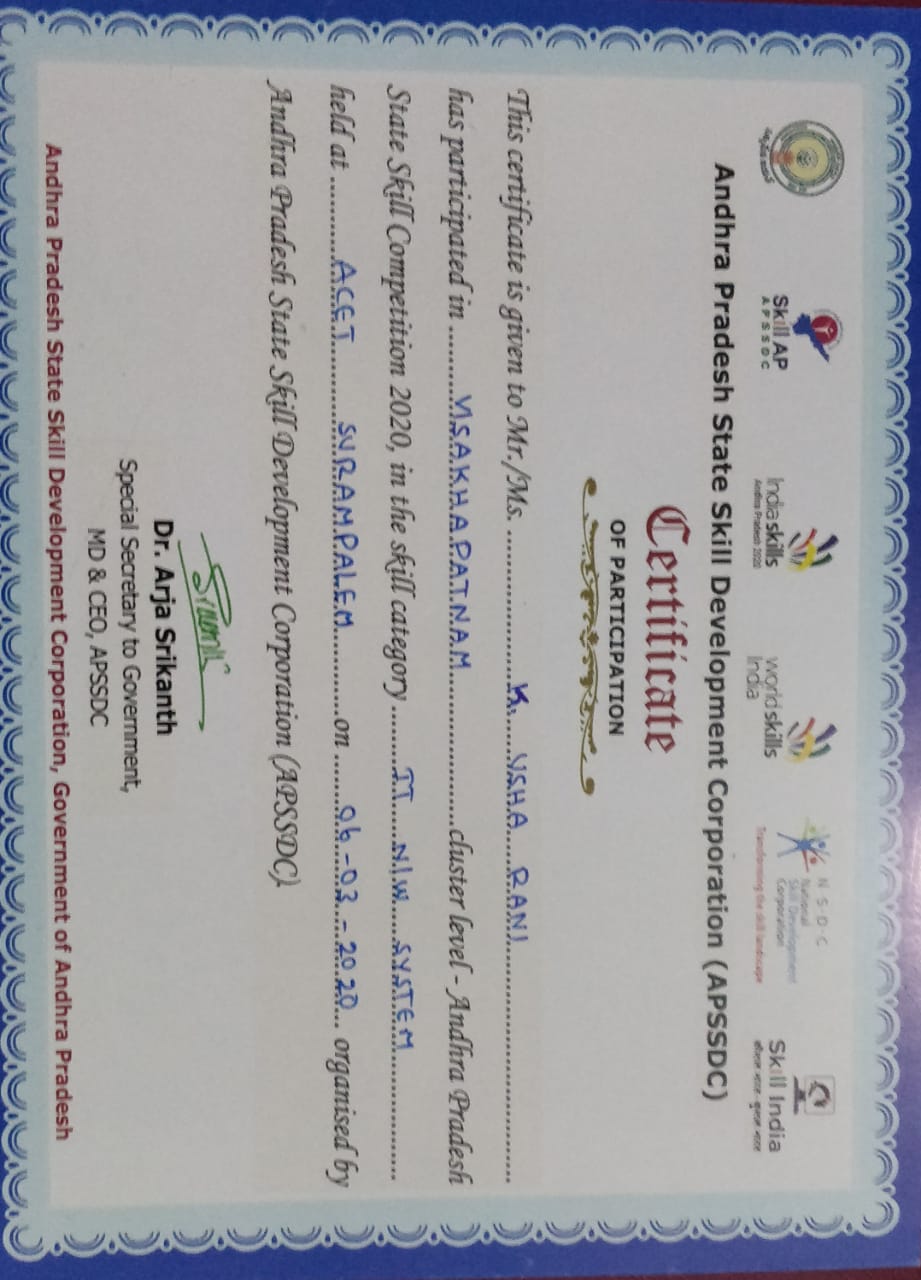 Skill AP
APSSDC
India skills
Andhra Pradesh 2020
world skills
India
N·S·D·C
National
Skill Development
Corporation
Transforming the skill landscape
Skill India
कौशल भारत - कुशल भारत
Andhra Pradesh State Skill Development Corporation (APSSDC)
Certificate
OF PARTICIPATION
This certificate is given to Mr./Ms. K. USHA RANI
has participated in VISAKHAPATNAM cluster level - Andhra Pradesh
State Skill Competition 2020, in the skill category IT N/W SYSTEM
held at ACET SURAMPALEM on 06-03-2020 organised by
Andhra Pradesh State Skill Development Corporation (APSSDC).
Dr. Arja Srikanth
Special Secretary to Government,
MD & CEO, APSSDC
Andhra Pradesh State Skill Development Corporation, Government of Andhra Pradesh